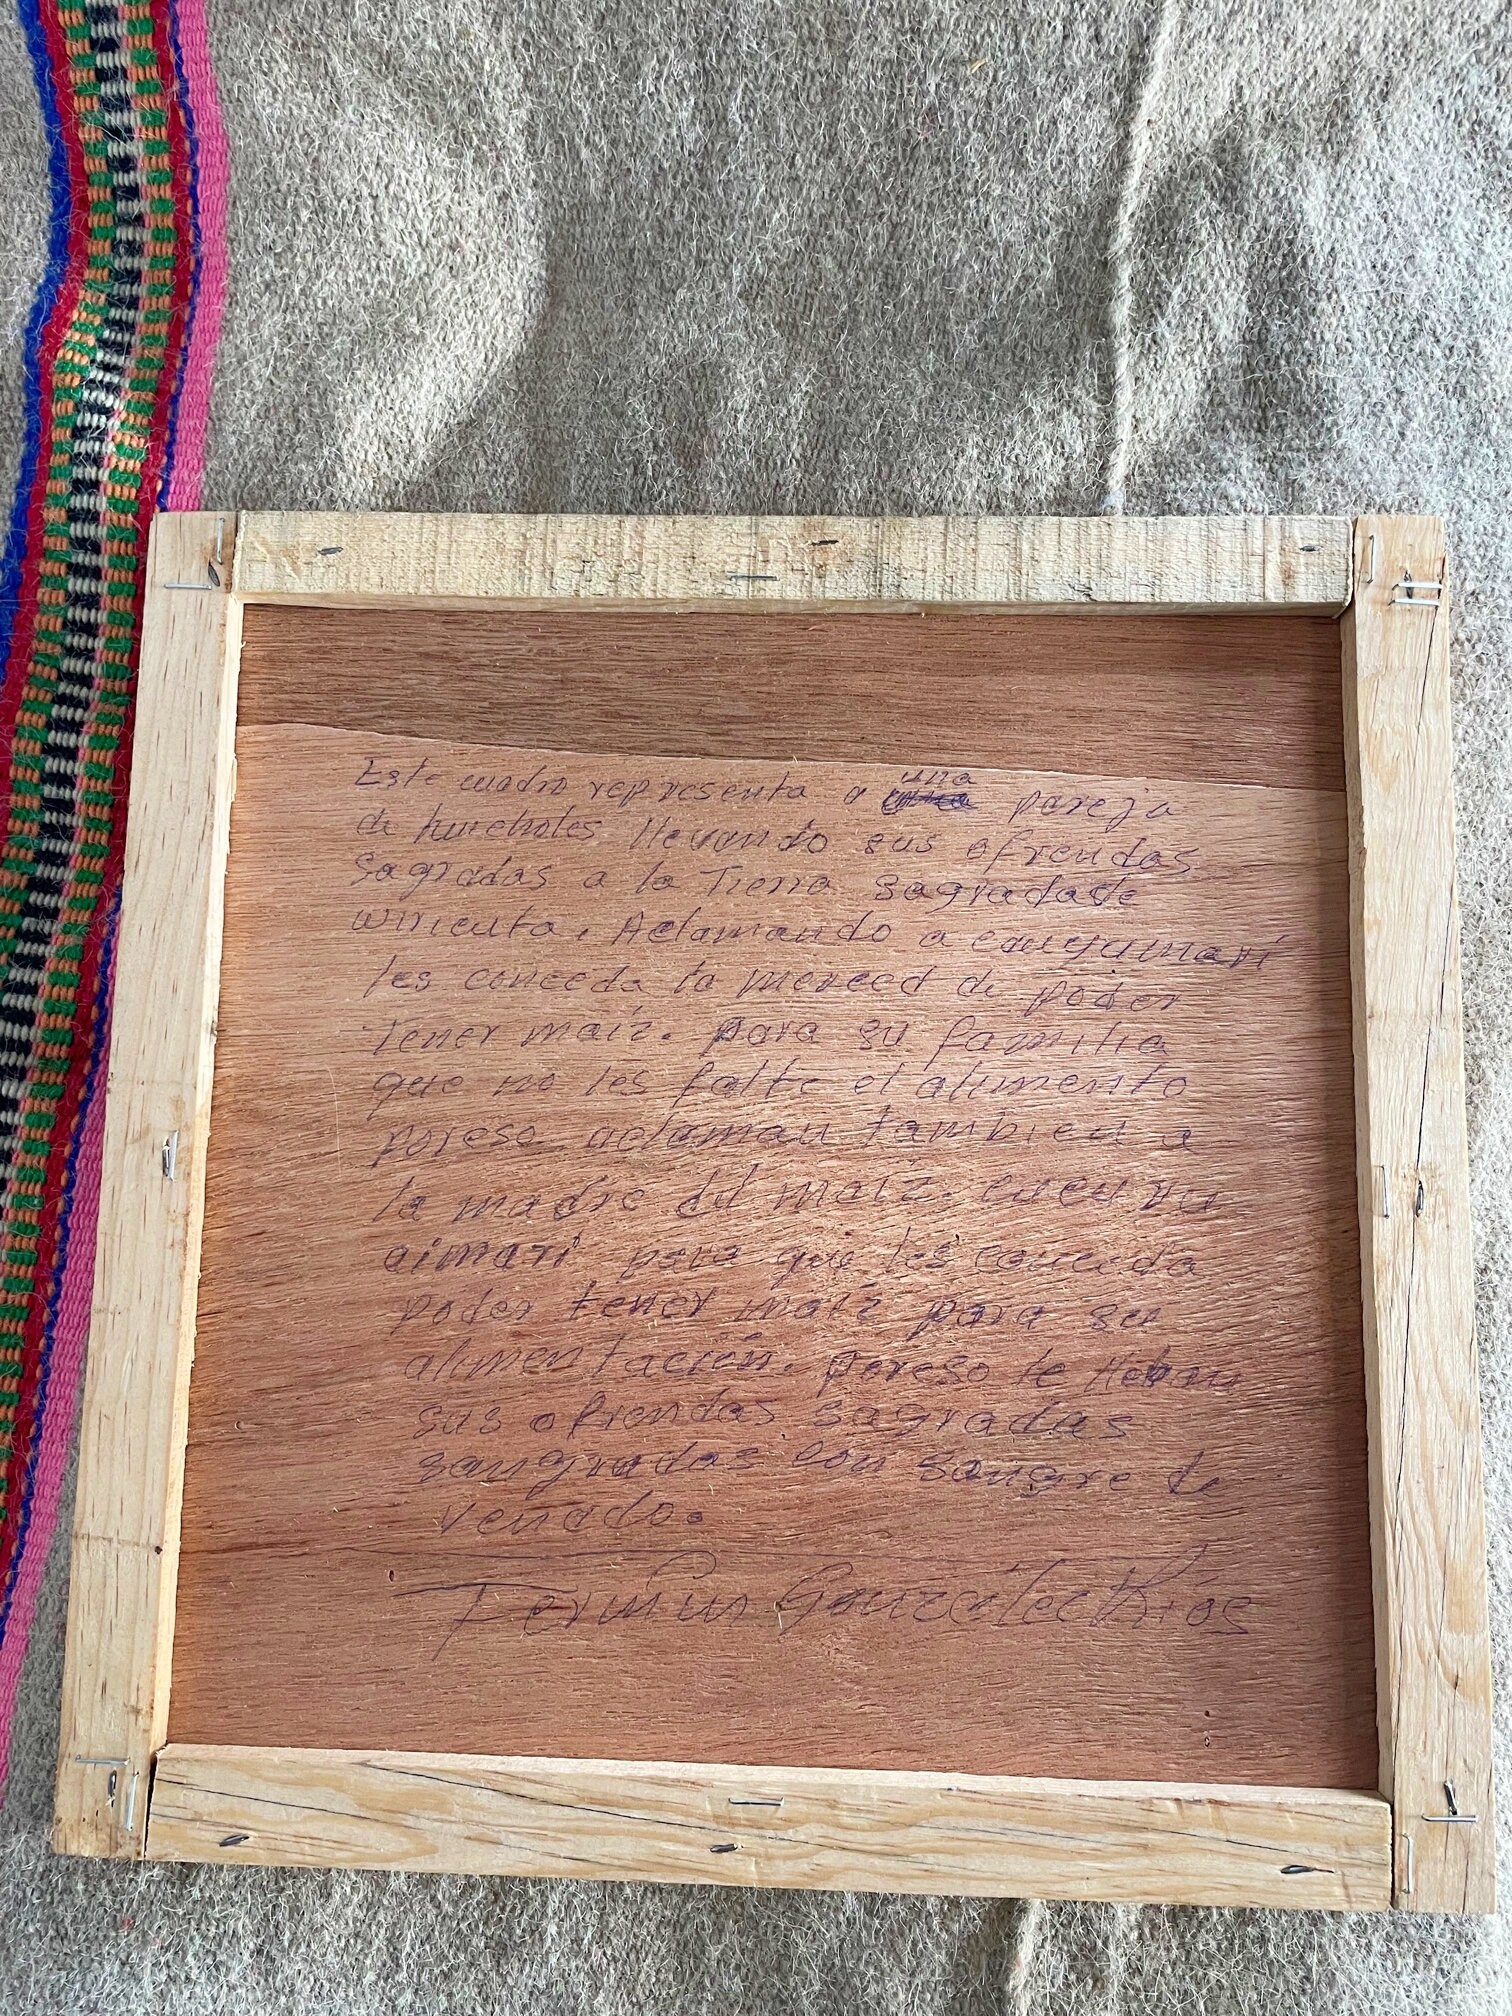 Este cuadro representa a una pareja
de huicholes llevando sus ofrendas
sagradas a la Tierra sagrada de
wiricuta. Aclamando a cauyumari
les conceda la merced de poder
tener maíz. para su familia
que no les falte el alimento
poreso aclaman tambien a
la madre del maiz.
aimari para que les conceda
poder tener maiz para su
alimentación. poreso le llevan
sus ofrendas sagradas
sangradas con sangre de
venado.
Fermin González Ríos